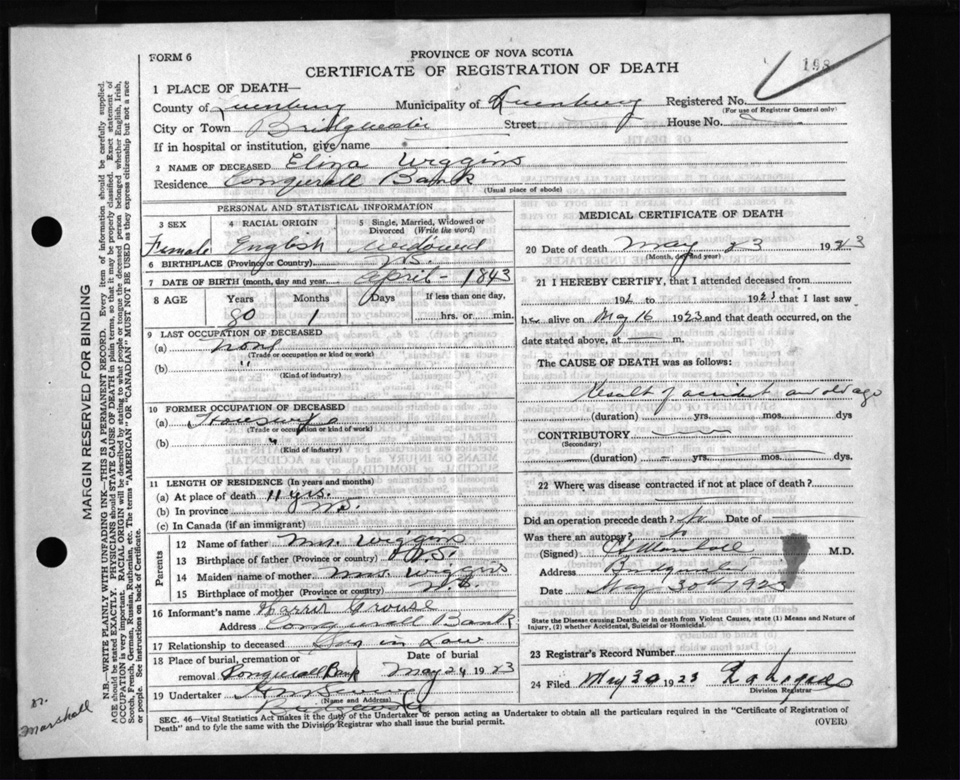 FORM 6
PROVINCE OF NOVA SCOTIA
CERTIFICATE OF REGISTRATION OF DEATH
198
1 PLACE OF DEATH—
County of Lunenburg Municipality of Lunenburg Registered No.
(For use of Registrar General only)
City or Town Bridgewater Street House No.
If in hospital or institution, give name
2 NAME OF DECEASED Eliza Wiggins
Residence Conquerall Bank
(Usual place of abode)
PERSONAL AND STATISTICAL INFORMATION
3 SEX 4 RACIAL ORIGIN 5 Single, Married, Widowed or Divorced (Write the word)
Female English Widowed
6 BIRTHPLACE (Province or Country) N.S.
7 DATE OF BIRTH (month, day and year) April - 1843
8 AGE Years Months Days If less than one day,
80 1 hrs. or min.
9 LAST OCCUPATION OF DECEASED
(a) None
(Trade or occupation or kind or work)
(b) "
(Kind of industry)
10 FORMER OCCUPATION OF DECEASED
(a) Housewife
(Trade or occupation or kind or work)
(b) "
(Kind of Industry)
11 LENGTH OF RESIDENCE (In years and months)
(a) At place of death 11 yrs.
(b) In province
(c) In Canada (if an immigrant)
Parents
12 Name of father Mr. Wiggins
13 Birthplace of father (Province or country) N.S.
14 Maiden name of mother Mrs Wiggins
15 Birthplace of mother (Province or country) N.S.
16 Informant's name Crouse
Address Conquerall Bank
17 Relationship to deceased Son in Law
18 Place of burial, cremation or removal Conquerall Bank Date of burial May 24 1923
19 Undertaker
(Name and Address)
Bridgewater
MEDICAL CERTIFICATE OF DEATH
20 Date of death May 23 1923
(Month, day and year)
21 I HEREBY CERTIFY, that I attended deceased from
192 to 192 that I last saw
her alive on May 16 1923 and that death occurred, on
date stated above, at — m.
The CAUSE OF DEATH was as follows:
Result of accident and old age
(duration) yrs. mos. dys
CONTRIBUTORY
(Secondary)
(duration) yrs. mos. dys.
22 Where was disease contracted if not at place of death?
Did an operation precede death? No Date of —
Was there an autopsy?
(Signed) Marshall M.D.
Address Bridgewater
Date May 30th 1923
State the Disease causing Death, or in death from Violent Causes, state (1) Means and Nature of Injury, (2) whether Accidental, Suicidal or Homicidal.
23 Registrar's Record Number
24 Filed May 30 1923
Division Registrar
SEC. 46—Vital Statistics Act makes it the duty of the Undertaker or person acting as Undertaker to obtain all the particulars required in the "Certificate of Registration of
Death" and to fyle the same with the Division Registrar who shall issue the burial permit. (OVER)
MARGIN RESERVED FOR BINDING
N.B.—WRITE PLAINLY WITH UNFADING INK—THIS IS A PERMANENT RECORD. Every item of information should be carefully supplied.
AGE should be stated EXACTLY. PHYSICIANS should STATE CAUSE OF DEATH in plain terms, so that it may be properly classified. Exact statement of
OCCUPATION is very important. RACIAL ORIGIN will be described by stating to what people or tongue the deceased person belonged whether English, Irish,
Scotch, French, German, Russian, Ruthenian, etc. The terms "AMERICAN" OR "CANADIAN" MUST NOT BE USED as they express citizenship but not a race
or people. See instructions on back of Certificate.
Marshall